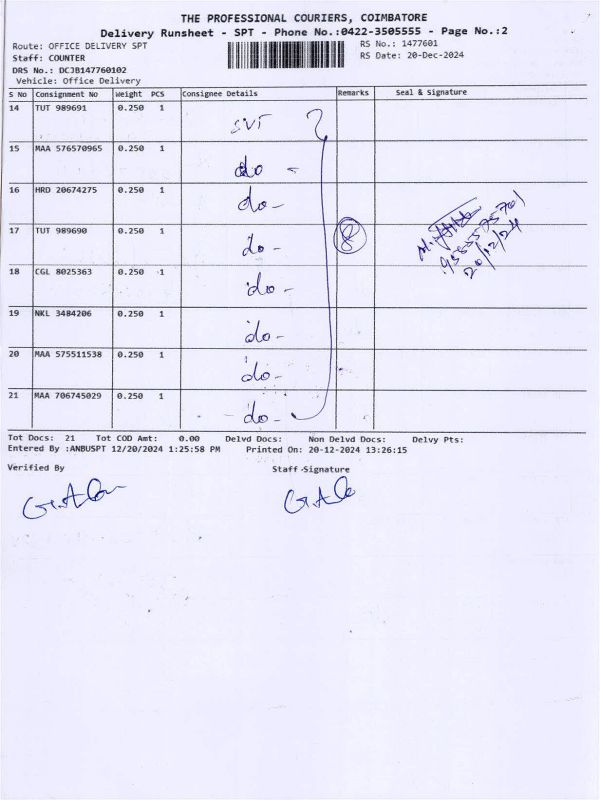 THE PROFESSIONAL COURIERS, COIMBATORE
Delivery Runsheet - SPT - Phone No.:0422-3505555 - Page No.:2
Route: OFFICE DELIVERY SPT
RS No.: 1477601
Staff: COUNTER
RS Date: 20-Dec-2024
DRS No.: DCJB147760102
Vehicle: Office Delivery
S No Consignment No Weight PCS Consignee Details Remarks Seal & Signature
14 TUT 989691 0.250 1 SVT
15 MAA 576570965 0.250 1 do -
16 HRD 20674275 0.250 1 do -
17 TUT 989690 0.250 1 do - 8
20/12/24
18 CGL 8025363 0.250 1 do -
19 NKL 3484206 0.250 1 do -
20 MAA 575511538 0.250 1 do -
21 MAA 706745029 0.250 1 - do -
Tot Docs: 21 Tot COD Amt: 0.00 Delvd Docs: Non Delvd Docs: Delvy Pts:
Entered By :ANBUSPT 12/20/2024 1:25:58 PM Printed On: 20-12-2024 13:26:15
Verified By Staff Signature